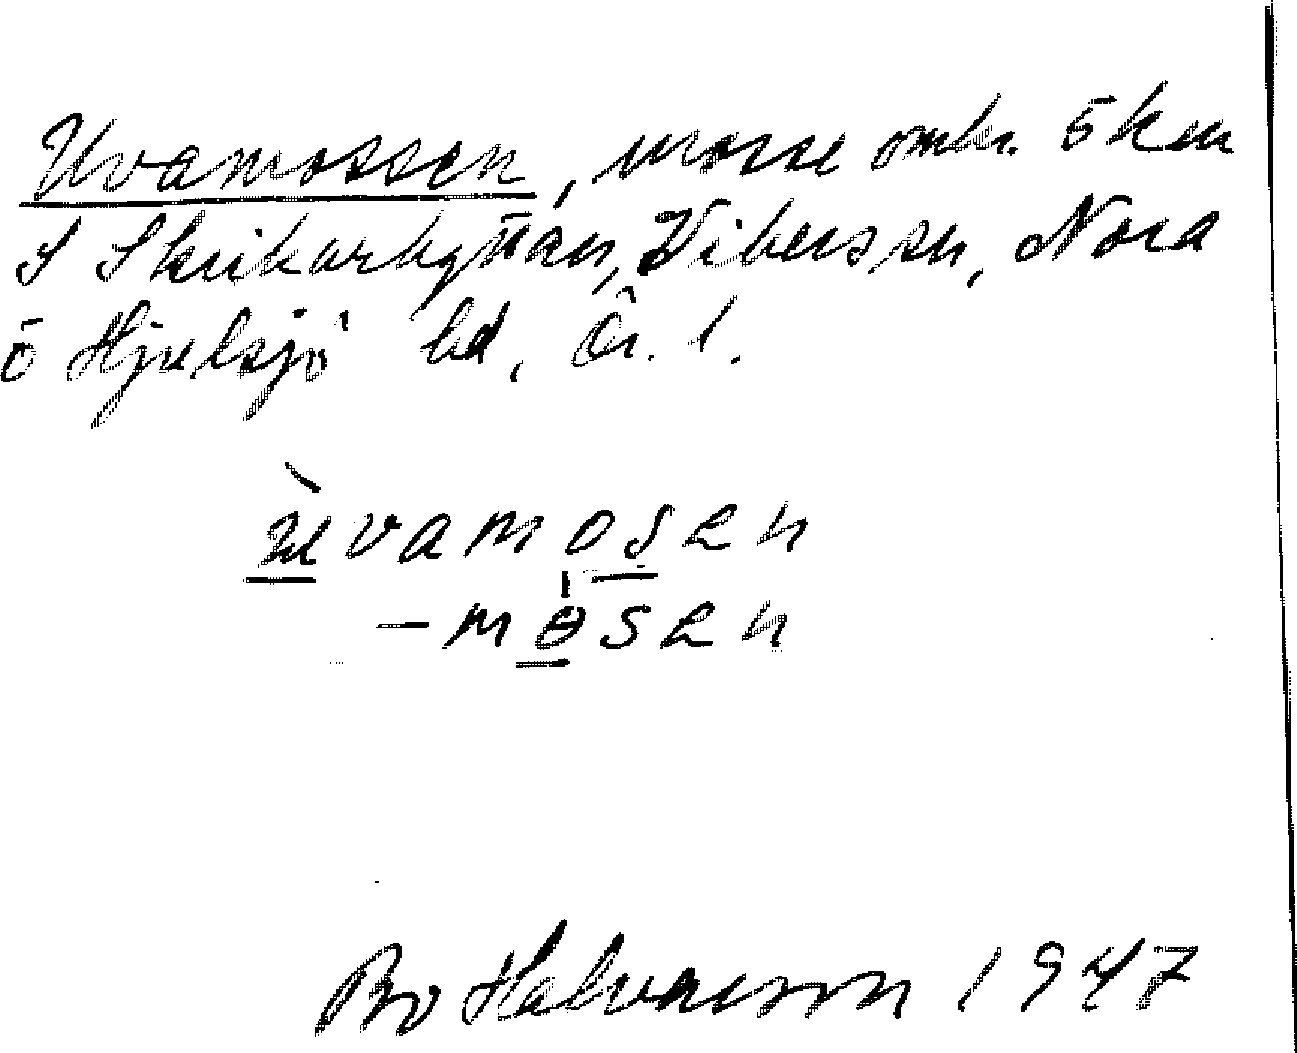 Uvamossen, mosse omkr. 5 km
S Skrikarhyttan, Vikers sn, Nora
o Hjulsjö bd, Ör. l.
ùvamosen
-mɵsen
Bo Halvarsson 1947